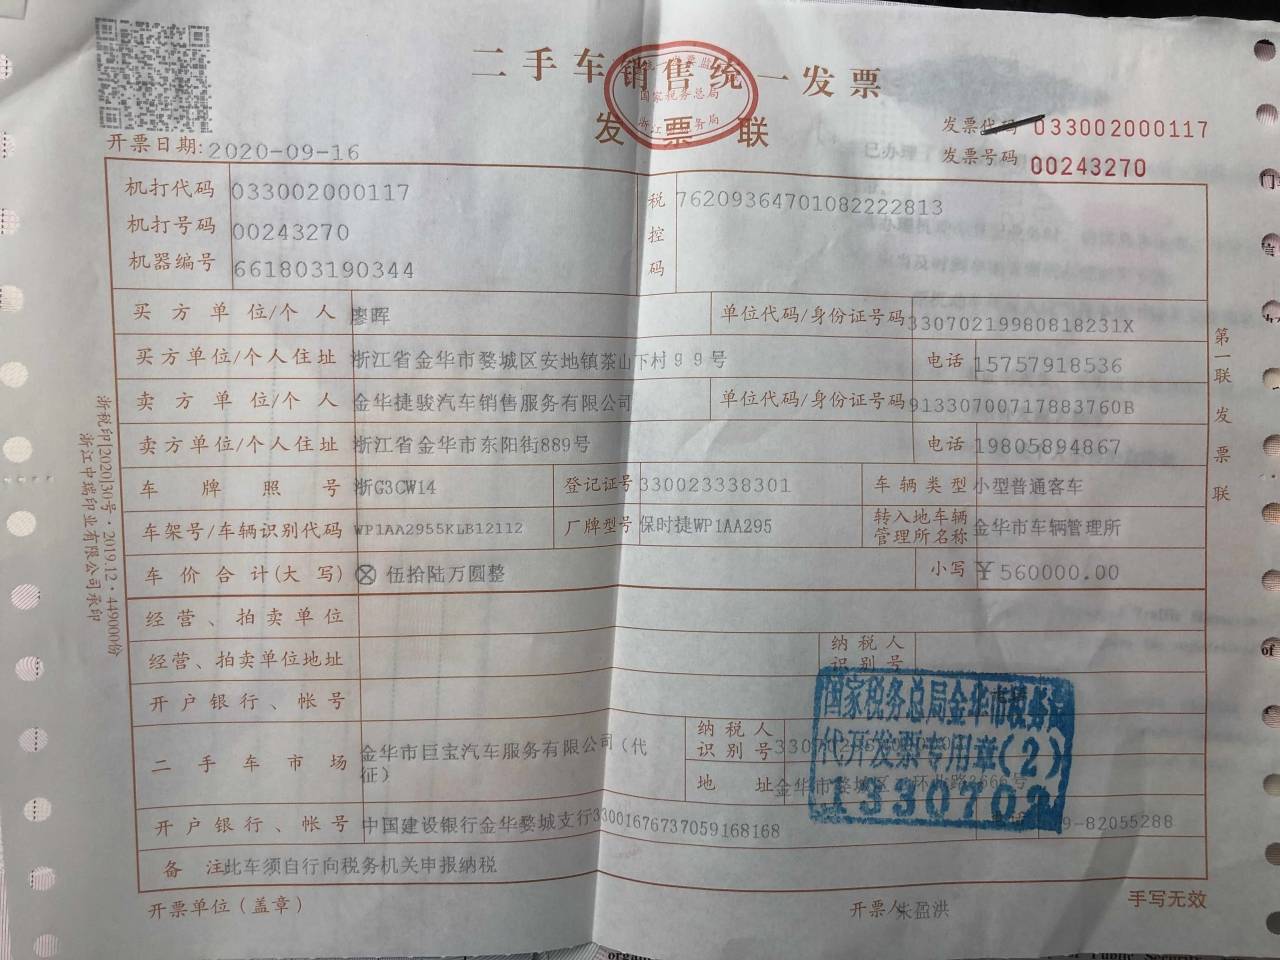 二手车销售统一发票
发票联
国家税务总局
发票代码 033002000117
发票号码 00243270
开票日期:2020-09-16
机打代码 033002000117
机打号码 00243270
机器编号 661803190344
税控码 76209364701082222813
买方单位/个人 廖晖 单位代码/身份证号码 33070219980818231X
买方单位/个人住址 浙江省金华市婺城区安地镇茶山下村99号 电话 15757918536
卖方单位/个人 金华捷骏汽车销售服务有限公司 单位代码/身份证号码 91330700717883760B
卖方单位/个人住址 浙江省金华市东阳街889号 电话 19805894867
车牌照号 浙G3CW14 登记证号 330023338301 车辆类型 小型普通客车
车架号/车辆识别代码 WP1AA2955KLB12112 厂牌型号 保时捷WP1AA295 转入地车辆管理所名称 金华市车辆管理所
车价合计(大写) ⊗ 伍拾陆万圆整 小写 ¥560000.00
经营、拍卖单位
经营、拍卖单位地址 纳税人识别号
开户银行、帐号
二手车市场 金华市巨宝汽车服务有限公司（代征） 纳税人识别号
地址 金华市婺城区 环北路3666号
开户银行、帐号 中国建设银行金华婺城支行33001676737059168168 -82055288
备注 此车须自行向税务机关申报纳税
开票单位(盖章) 开票人 朱盈洪 手写无效
国家税务总局金华市税务局
代开发票专用章(2)
1330702
第一联 发票联
浙税印[2020]30号·2019.12·449000份
浙江中瑞印业有限公司承印
of